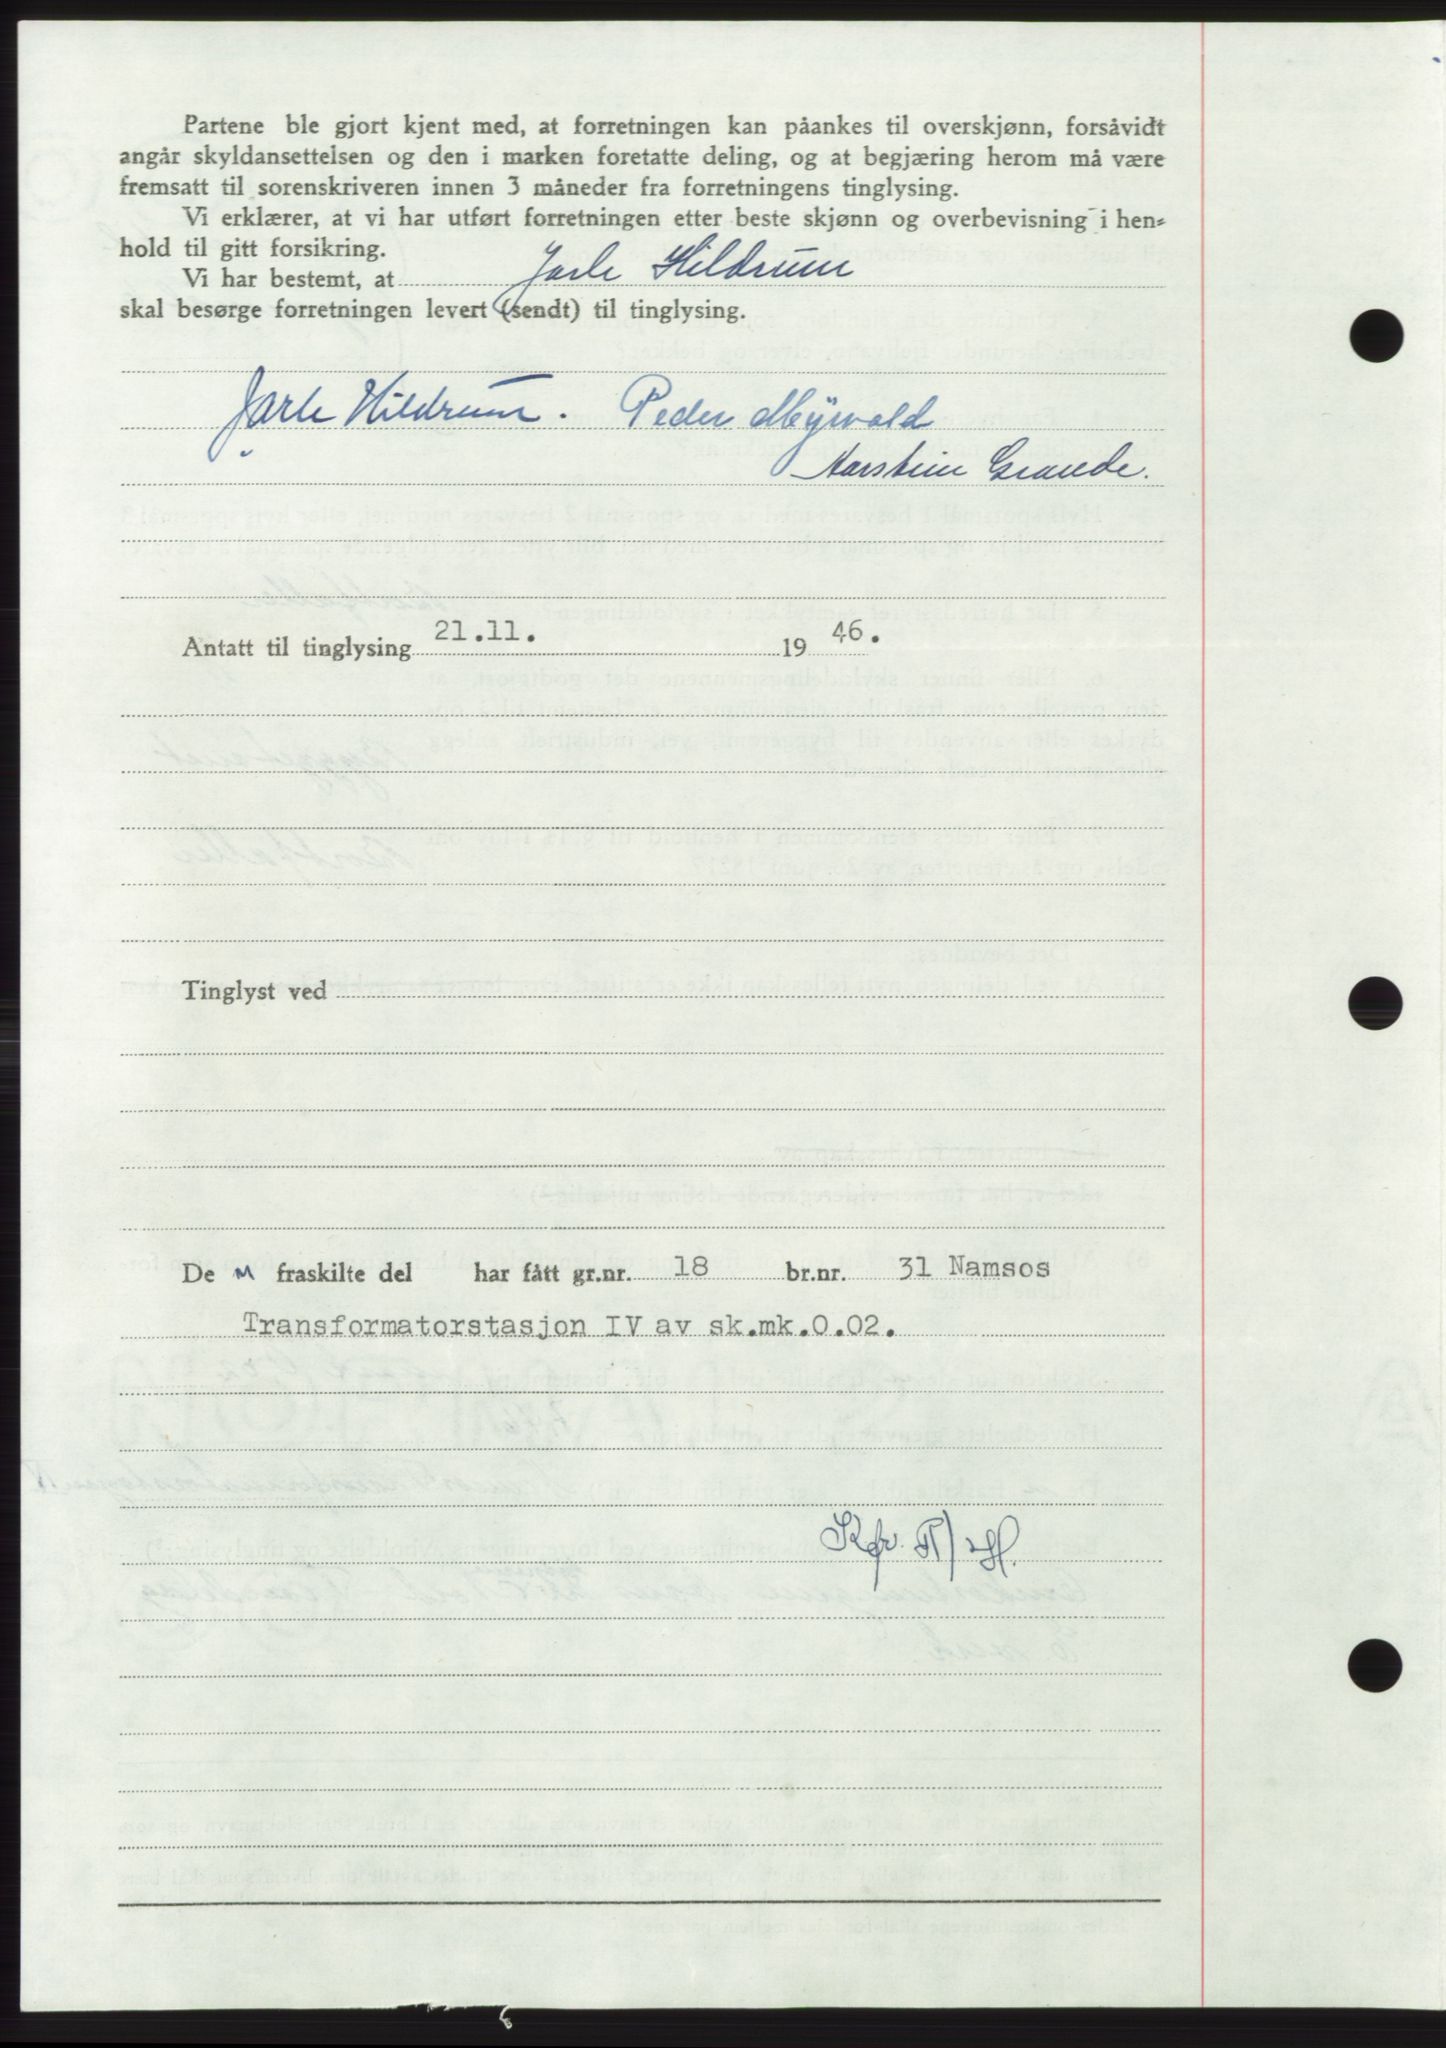 Partene ble gjort kjent med, at forretningen kan påankes til overskjønn, forsåvidt
angår skyldansettelsen og den i marken foretatte deling, og at begjæring herom må være
fremsatt til sorenskriveren innen 3 måneder fra forretningens tinglysing.
Vi erklærer, at vi har utført forretningen etter beste skjønn og overbevisning i hen-
hold til gitt forsikring.
Vi har bestemt, at Jarle Hildrum
skal besørge forretningen levert (sendt) til tinglysing.
Jarle Hildrum. Peder Myrvold
Torstein Grande.
Antatt til tinglysing 21.11. 19 46.
Tinglyst ved
De n fraskilte del har fått gr.nr. 18 br.nr. 31 Namsos
Transformatorstasjon IV av sk.mk.0.02.